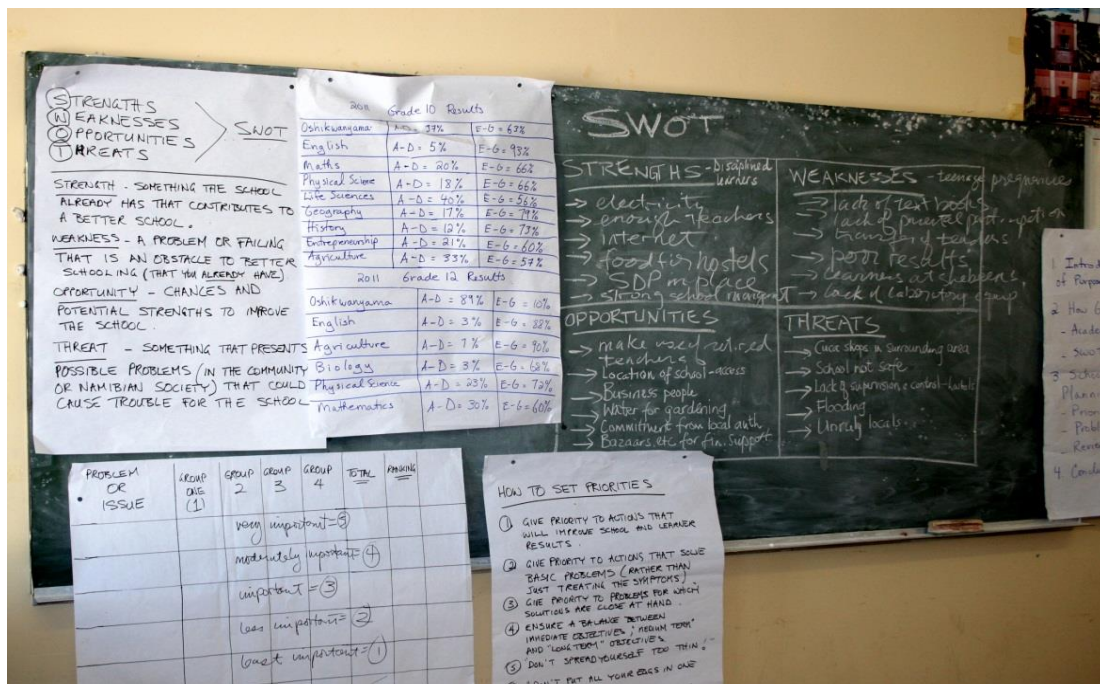 STRENGTHS
WEAKNESSES
OPPORTUNITIES
THREATS
SWOT
STRENGTH - SOMETHING THE SCHOOL
ALREADY HAS THAT CONTRIBUTES TO
A BETTER SCHOOL.
WEAKNESS - A PROBLEM OR FAILING
THAT IS AN OBSTACLE TO BETTER
SCHOOLING (THAT YOU ALREADY HAVE)
OPPORTUNITY - CHANCES AND
POTENTIAL STRENGTHS TO IMPROVE
THE SCHOOL.
THREAT - SOMETHING THAT PRESENTS
POSSIBLE PROBLEMS (IN THE COMMUNITY
OR NAMIBIAN SOCIETY) THAT COULD
CAUSE TROUBLE FOR THE SCHOOL
2011 Grade 10 Results
Oshikwanyama A-D = 37% E-G = 63%
English A-D = 5% E-G = 93%
Maths A-D = 20% E-G = 66%
Physical Science A-D = 18% E-G = 66%
Life Sciences A-D = 40% E-G = 56%
Geography A-D = 17% E-G = 79%
History A-D = 12% E-G = 73%
Entrepreneurship A-D = 21% E-G = 60%
Agriculture A-D = 33% E-G = 57%
2011 Grade 12 Results
Oshikwanyama A-D = 89% E-G = 10%
English A-D = 3% E-G = 88%
Agriculture A-D = 7% E-G = 90%
Biology A-D = 3% E-G = 62%
Physical Science A-D = 23% E-G = 72%
Mathematics A-D = 30% E-G = 60%
SWOT
STRENGTHS - Disciplined
learners
→ electricity
→ enough teachers
→ internet
→ food for hostels
→ SDP in place
→ strong school managent
WEAKNESSES - teenage pregnancies
→ lack of text books
→ lack of parental
→ poor results
→ Learners at shebeens
→ Lack of laboratory equip
OPPORTUNITIES
→ make use of retired
teachers
→ Location of school - access
→ Business people
→ Water for gardening
→ Commitment from local auth.
→ Bazaars, etc. for fin. support
THREATS
→ Cuca shops in surrounding area
→ School not safe
→ Lack of supervision & control - hostels
→ Flooding
→ Unruly locals
1 Introd
of Purpos
2 How
- Acade
- SWOT
3
Plann
- Prior
- Probl
- Review
4 Concl
PROBLEM
OR
ISSUE
GROUP
ONE
(1)
GROUP
2
GROUP
3
GROUP
4
TOTAL
RANKING
very important = 5
moderately important = 4
important = 3
less important = 2
least important = 1
HOW TO SET PRIORITIES
1 GIVE PRIORITY TO ACTIONS THAT
WILL IMPROVE SCHOOL AND LEARNER
RESULTS.
2 GIVE PRIORITY TO ACTIONS THAT SOLVE
BASIC PROBLEMS (RATHER THAN
JUST TREATING THE SYMPTOMS)
3 GIVE PRIORITY TO PROBLEMS FOR WHICH
SOLUTIONS ARE CLOSE AT HAND.
4 ENSURE A BALANCE BETWEEN
IMMEDIATE OBJECTIVES, "MEDIUM TERM"
AND "LONG TERM" OBJECTIVES
5 DON'T SPREAD YOURSELF TOO THIN!
DON'T PUT ALL YOUR EGGS IN ONE